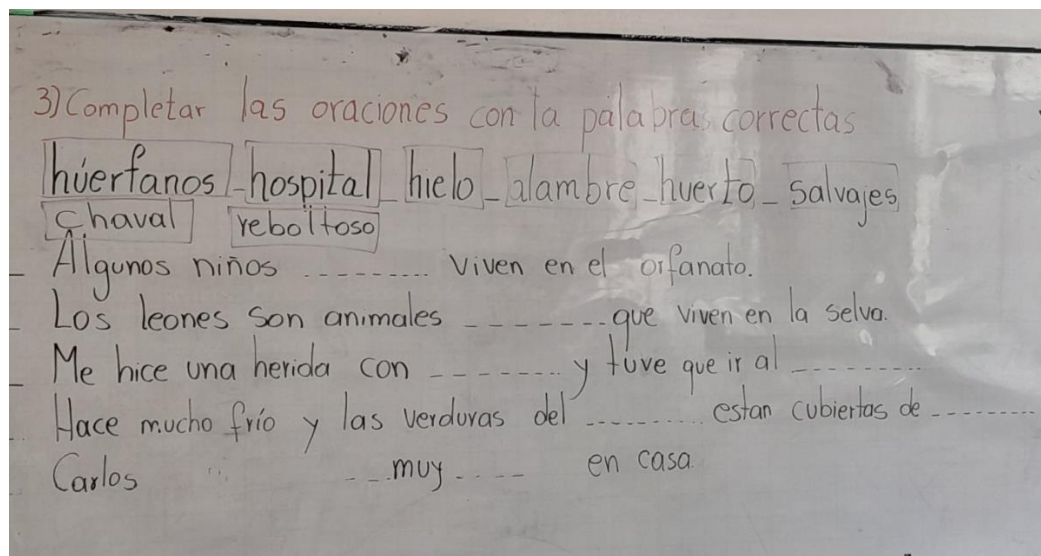 3) Completar las oraciones con la palabras correctas
húerfanos - hospital - hielo - alambre - huerto - salvajes
chaval reboltoso
- Algunos niños ......... viven en el orfanato.
- Los leones son animales ------- que viven en la selva.
- Me hice una herida con -------- y tuve que ir al ---------
- Hace mucho frío y las verduras del --------- estan cubiertas de --------
- Carlos --- muy ---- en casa.